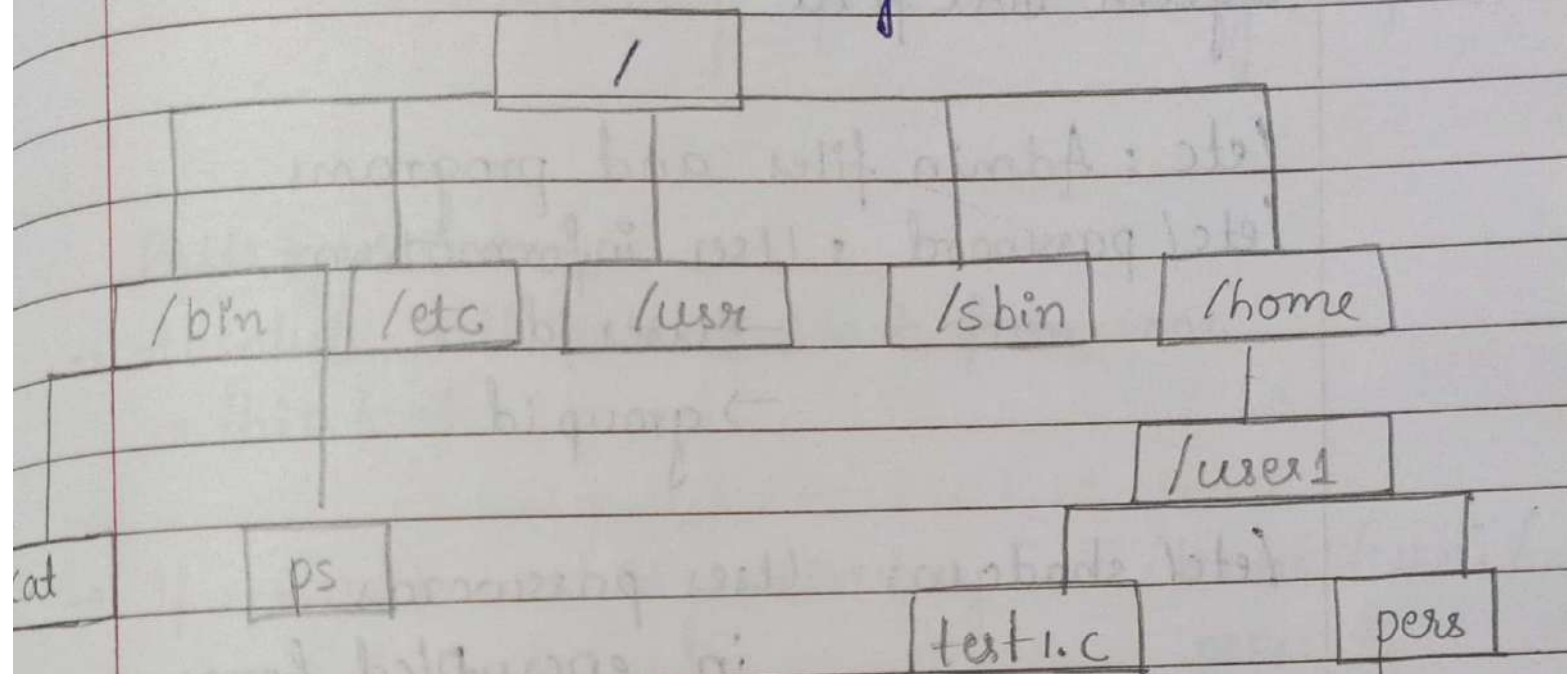 /
/bin /etc /usr /sbin /home
/user1
cat ps
test1.c pers